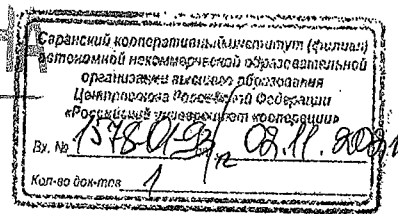 НА
Саранский кооперативный институт (филиал)
автономной некоммерческой образовательной
организации высшего образования
Центросоюза Российской Федерации
«Российский университет кооперации»
Вх. № 02.11.2021
Кол-во док-тов 1